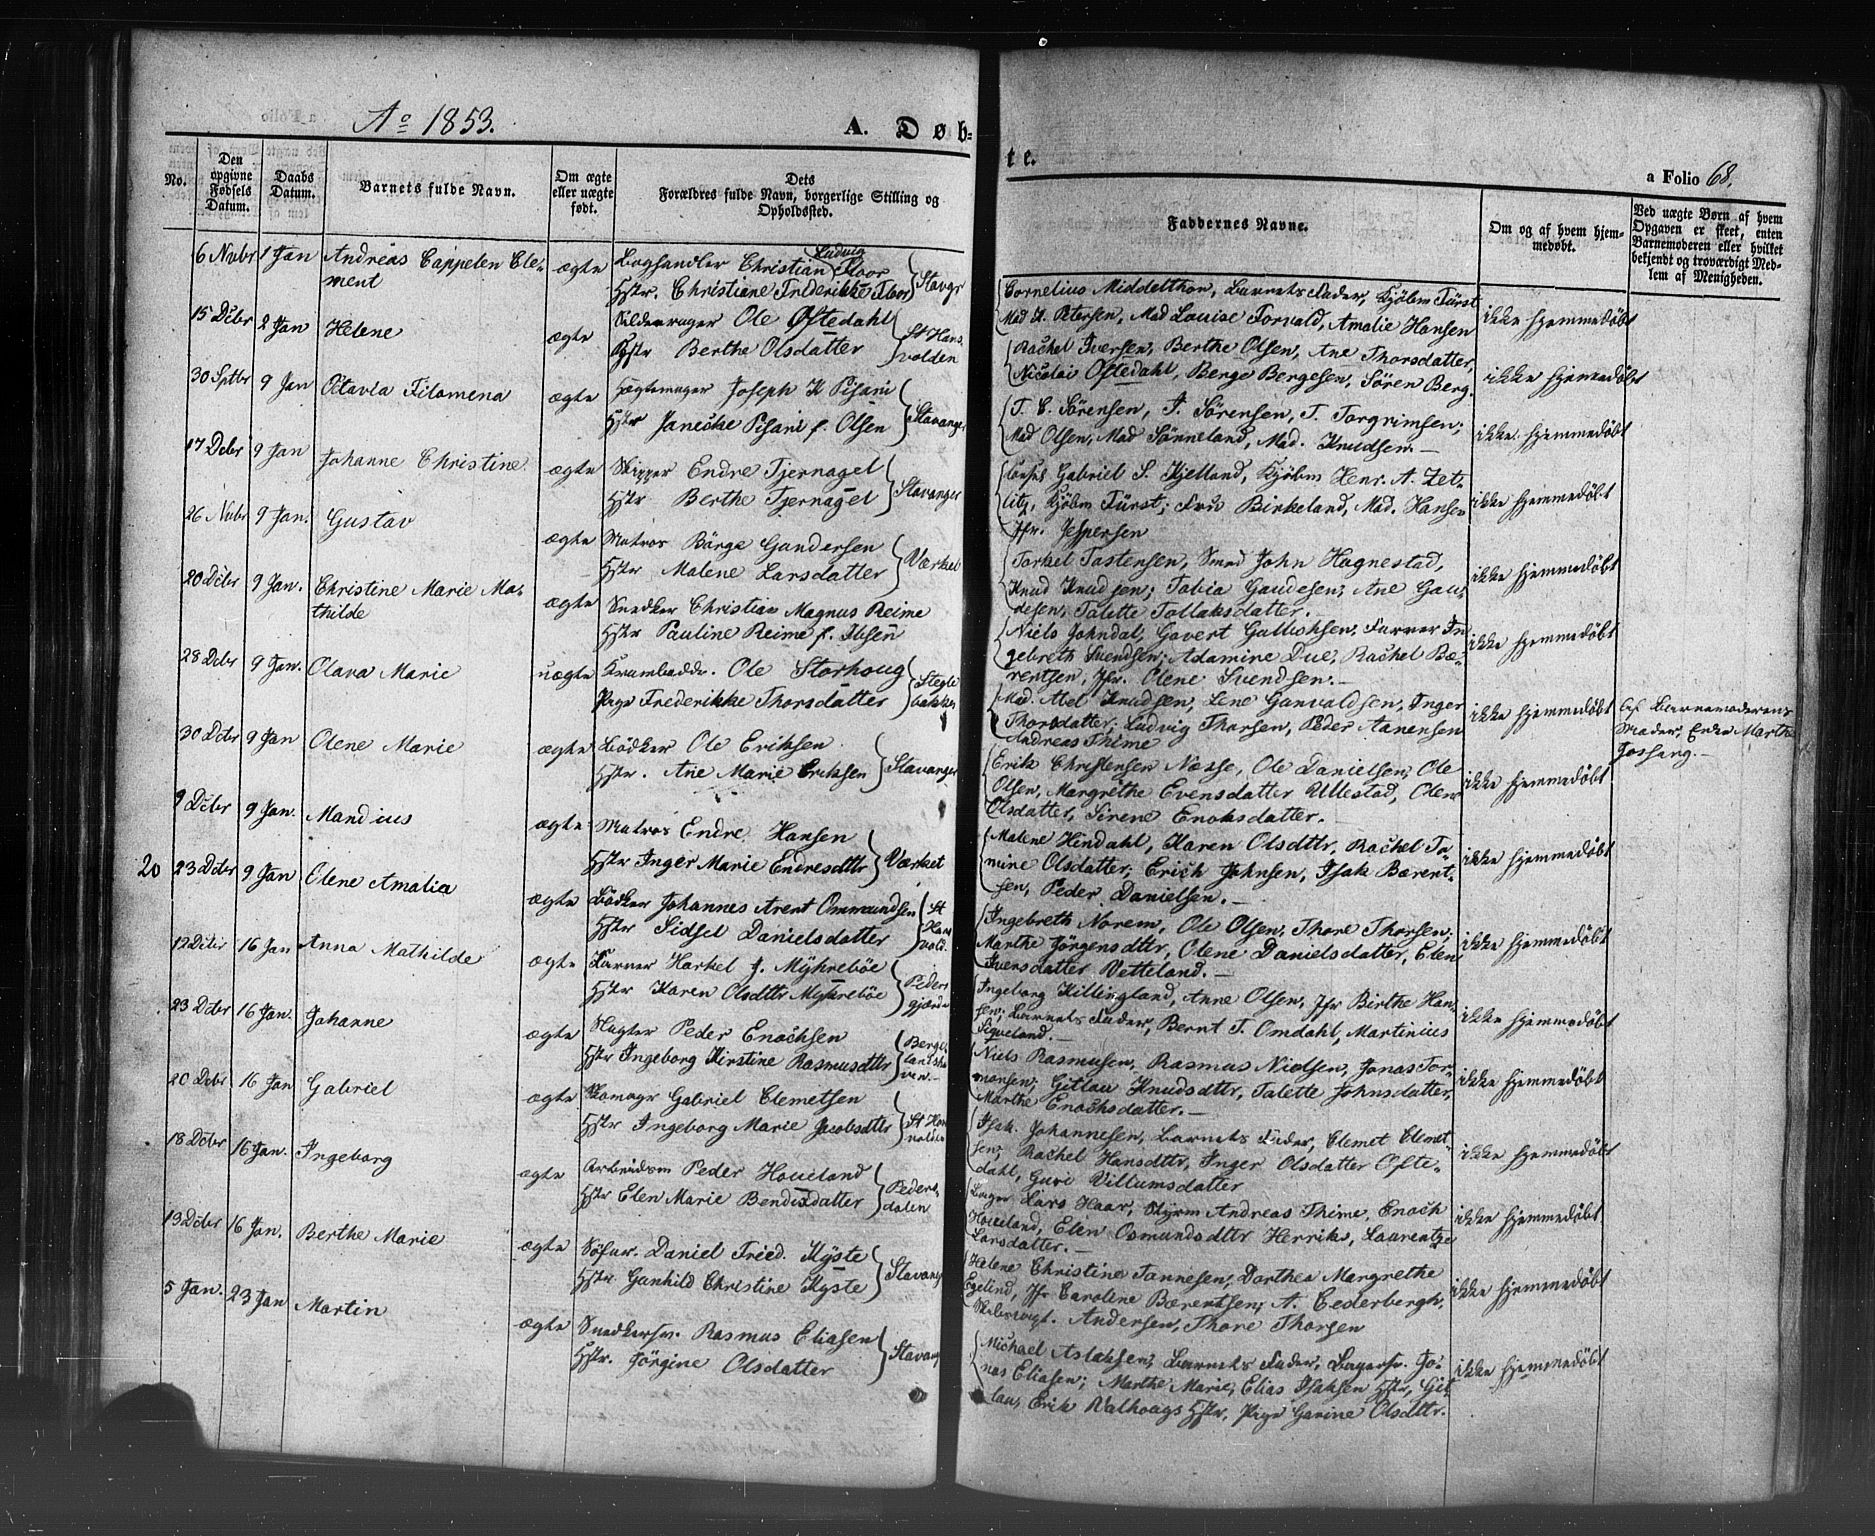 Ao 1853.
A. Døb-
te.
a Folio 68.
No.
Den opgivne Fødsels Datum.
Daabs Datum.
Barnets fulde Navn.
Om ægte eller uægte født.
Dets Forældres fulde Navn, borgerlige Stilling og Opholdssted.
Faddernes Navne.
Om og af hvem hjem-
medøbt.
Ved uægte Børn af hvem Opgaven er skeet, enten Barnemoderen eller hvilket bekjendt og troværdigt Med-
lem af Menigheden.
6 Nvbr 1 Jan Andreas Cappelen Cle-
ment
ægte Boghandler Christian Ludvig Floor
Hstr. Christiane Frederikke Floor Stavgr
Cornelius Middelthon, Barnets Fader, Kjöbm Fürst
Mad Petersen, Mad Louise Torvald, Amalie Hansen
ikke hjemmedøbt
15 Dcbr 2 Jan Helene
ægte Ole Oftedahl
Hstr Berthe Olsdatter St Hans
volden
Rachel Iversen, Berthe Olsen, Ane Thorsdatter,
Nicolai Oftedahl, Berge Bergesen, Sören Berg.
ikke hjemmedøbt
30 Sptbr 9 Jan Octavia Filomena
ægte Joseph K Pisani
Hstr Janecke Pisani f. Olsen Stavanger
T. C. Sörensen, J. Sörensen, T. Torgrimsen;
Mad Olsen, Mad Sönneland, Mad. Knudsen.—
ikke hjemmedøbt
17 Dcbr 9 Jan Johanne Christine
ægte Skipper Endre Tjernagel
Hstr Berthe Tjernagel Stavanger
Gabriel S. Kjelland, Kjöbm Henr. A. Zet-
litz, Kjöbm Fürst; Fru Birkeland, Mad. Hansen
Jfr. Jespersen
ikke hjemmedøbt
26 Nvbr 9 Jan. Gustav
ægte Matros Börge Gundersen
Hstr Malene Larsdatter Værket
Torkel Tastensen, Smed John Hognestad,
Knud Knudsen; Tobia Gaudesen, Ane Gau-
desen, Talette Tollaksdatter.
ikke hjemmedøbt
20 Dcbr 9 Jan. Christine Marie Ma-
thilde
ægte Snedker Christian Magnus Reime
Hstr Pauline Reime f. Ibsen
Niels Johndal, Govert Gallishsen, Farver In-
gebreth Svendsen; Adamine Due, Rachel Bæ-
rentsen, Jfr. Olene Svendsen.—
ikke hjemmedøbt
28 Dcbr 9 Jan. Olava Marie
uægte Ole Storhoug
Pige Frederikke Thorsdatter Stegle
bakken
Mad. Abel Knudsen, Lene Gunvaldsen, Inger
Thorsdatter; Ludvig Thorsen, Peder Aanensen
Andreas Thime
ikke hjemmedøbt
Af Barnemoderens
Moder, Enke Marthe
Jossang.—
30 Dcbr 9 Jan Olene Marie
ægte Bödker Ole Eriksen
Hstr. Ane Marie Eriksen Stavanger
Erik Christensen Næsse, Ole Danielsen, Ole
Olsen, Margrethe Evensdatter Ullestad, Olene
Olsdatter, Sirene Enoksdatter.—
ikke hjemmedøbt
9 Dcbr 9 Jan. Mandius
ægte Matros Endre Hansen
Hstr Inger Marie Endresdttr Værket
Malene Hindahl, Karen Olsdttr, Rachel To-
mine Olsdatter; Erich Johnsen, Isak Bærent-
sen, Peder Danielsen.—
ikke hjemmedøbt
20 23 Dcbr 9 Jan Olene Amalia
ægte Bödker Johannes Arent Ommundsen
Hstr Sidsel Danielsdatter St
Hans
vold.
Ingebreth Norem, Ole Olsen, Thore Thorsen;
Marthe Jörgensdttr, Olene Danielsdatter, Elen
Iversdatter Vetteland.—
ikke hjemmedøbt
12 Dcbr 16 Jan Anna Mathilde
ægte Farver Harkel J. Myhreböe
Hstr Karen Olsdttr Myhreböe Peders
gjerde
Ingeborg Killingland, Anne Olsen, Jfr Birthe Han-
sen; Barnets Fader, Bernt T. Omdahl, Martinius
Siqveland.—
ikke hjemmedøbt
23 Dcbr 16 Jan. Johanne
ægte Slagter Peder Enochsen
Hstr Ingeborg Kirstine Rasmusdttr Berge
landsha
ven.—
Niels Rasmusen, Rasmus Nielsen, Jonas Tor-
mansen; Gitlau Knudsdttr, Talette Johnsdatter,
Marthe Enochsdatter.—
ikke hjemmedøbt
20 Dcbr 16 Jan Gabriel
ægte Skomagr Gabriel Clemetsen
Hstr Ingeborg Marie Jacobsdttr St Hans
volden
Isak Johannesen, Barnets Fader, Clemet Clemet-
sen, Rachel Hansdttr, Inger Olsdatter Ofte-
dahl, Guri Villumsdatter
ikke hjemmedøbt
18 Dcbr 16 Jan. Ingeborg
ægte Arbeidsm Peder Houeland
Hstr Elen Marie Bendixdatter Peders
dalen
Bager Lars Haar, Styrm Andreas Thime, Enoch
Houeland, Elen Osmundsdttr Herrik, Laurentze
Larsdatter.—
ikke hjemmedøbt
13 Dcbr 16 Jan. Berthe Marie
ægte Daniel Fried. Kyste
Hstr. Gunhild Christine Kyste Stavang
Helene Christine Tannesen, Dorthea Margrethe
Egelind, Jfr Caroline Bærentsen; A. Cederbergh,
Andersen, Thore Thorsen
ikke hjemmedøbt
5 Jan. 23 Jan Martin
ægte Snedkersv. Rasmus Eliasen
Hstr. Jörgine Olsdatter Stavang
Michael Aslaksen, Barnets Fader, Bagersv. Jo-
nas Eliasen; Marthe Marie, Elias Isaksen Hstr, Git-
lau, Erik Valhougs Hstr, Pige Garine Olsdttr.
ikke hjemmedøbt